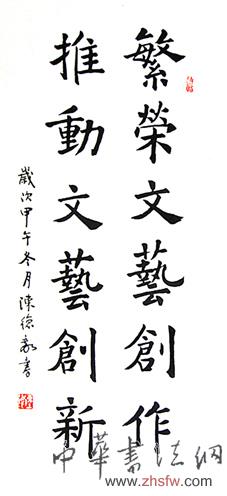 繁榮文藝創作
推動文藝創新
歲次甲午冬月陳德書
中華書法網
www.zhsfw.com